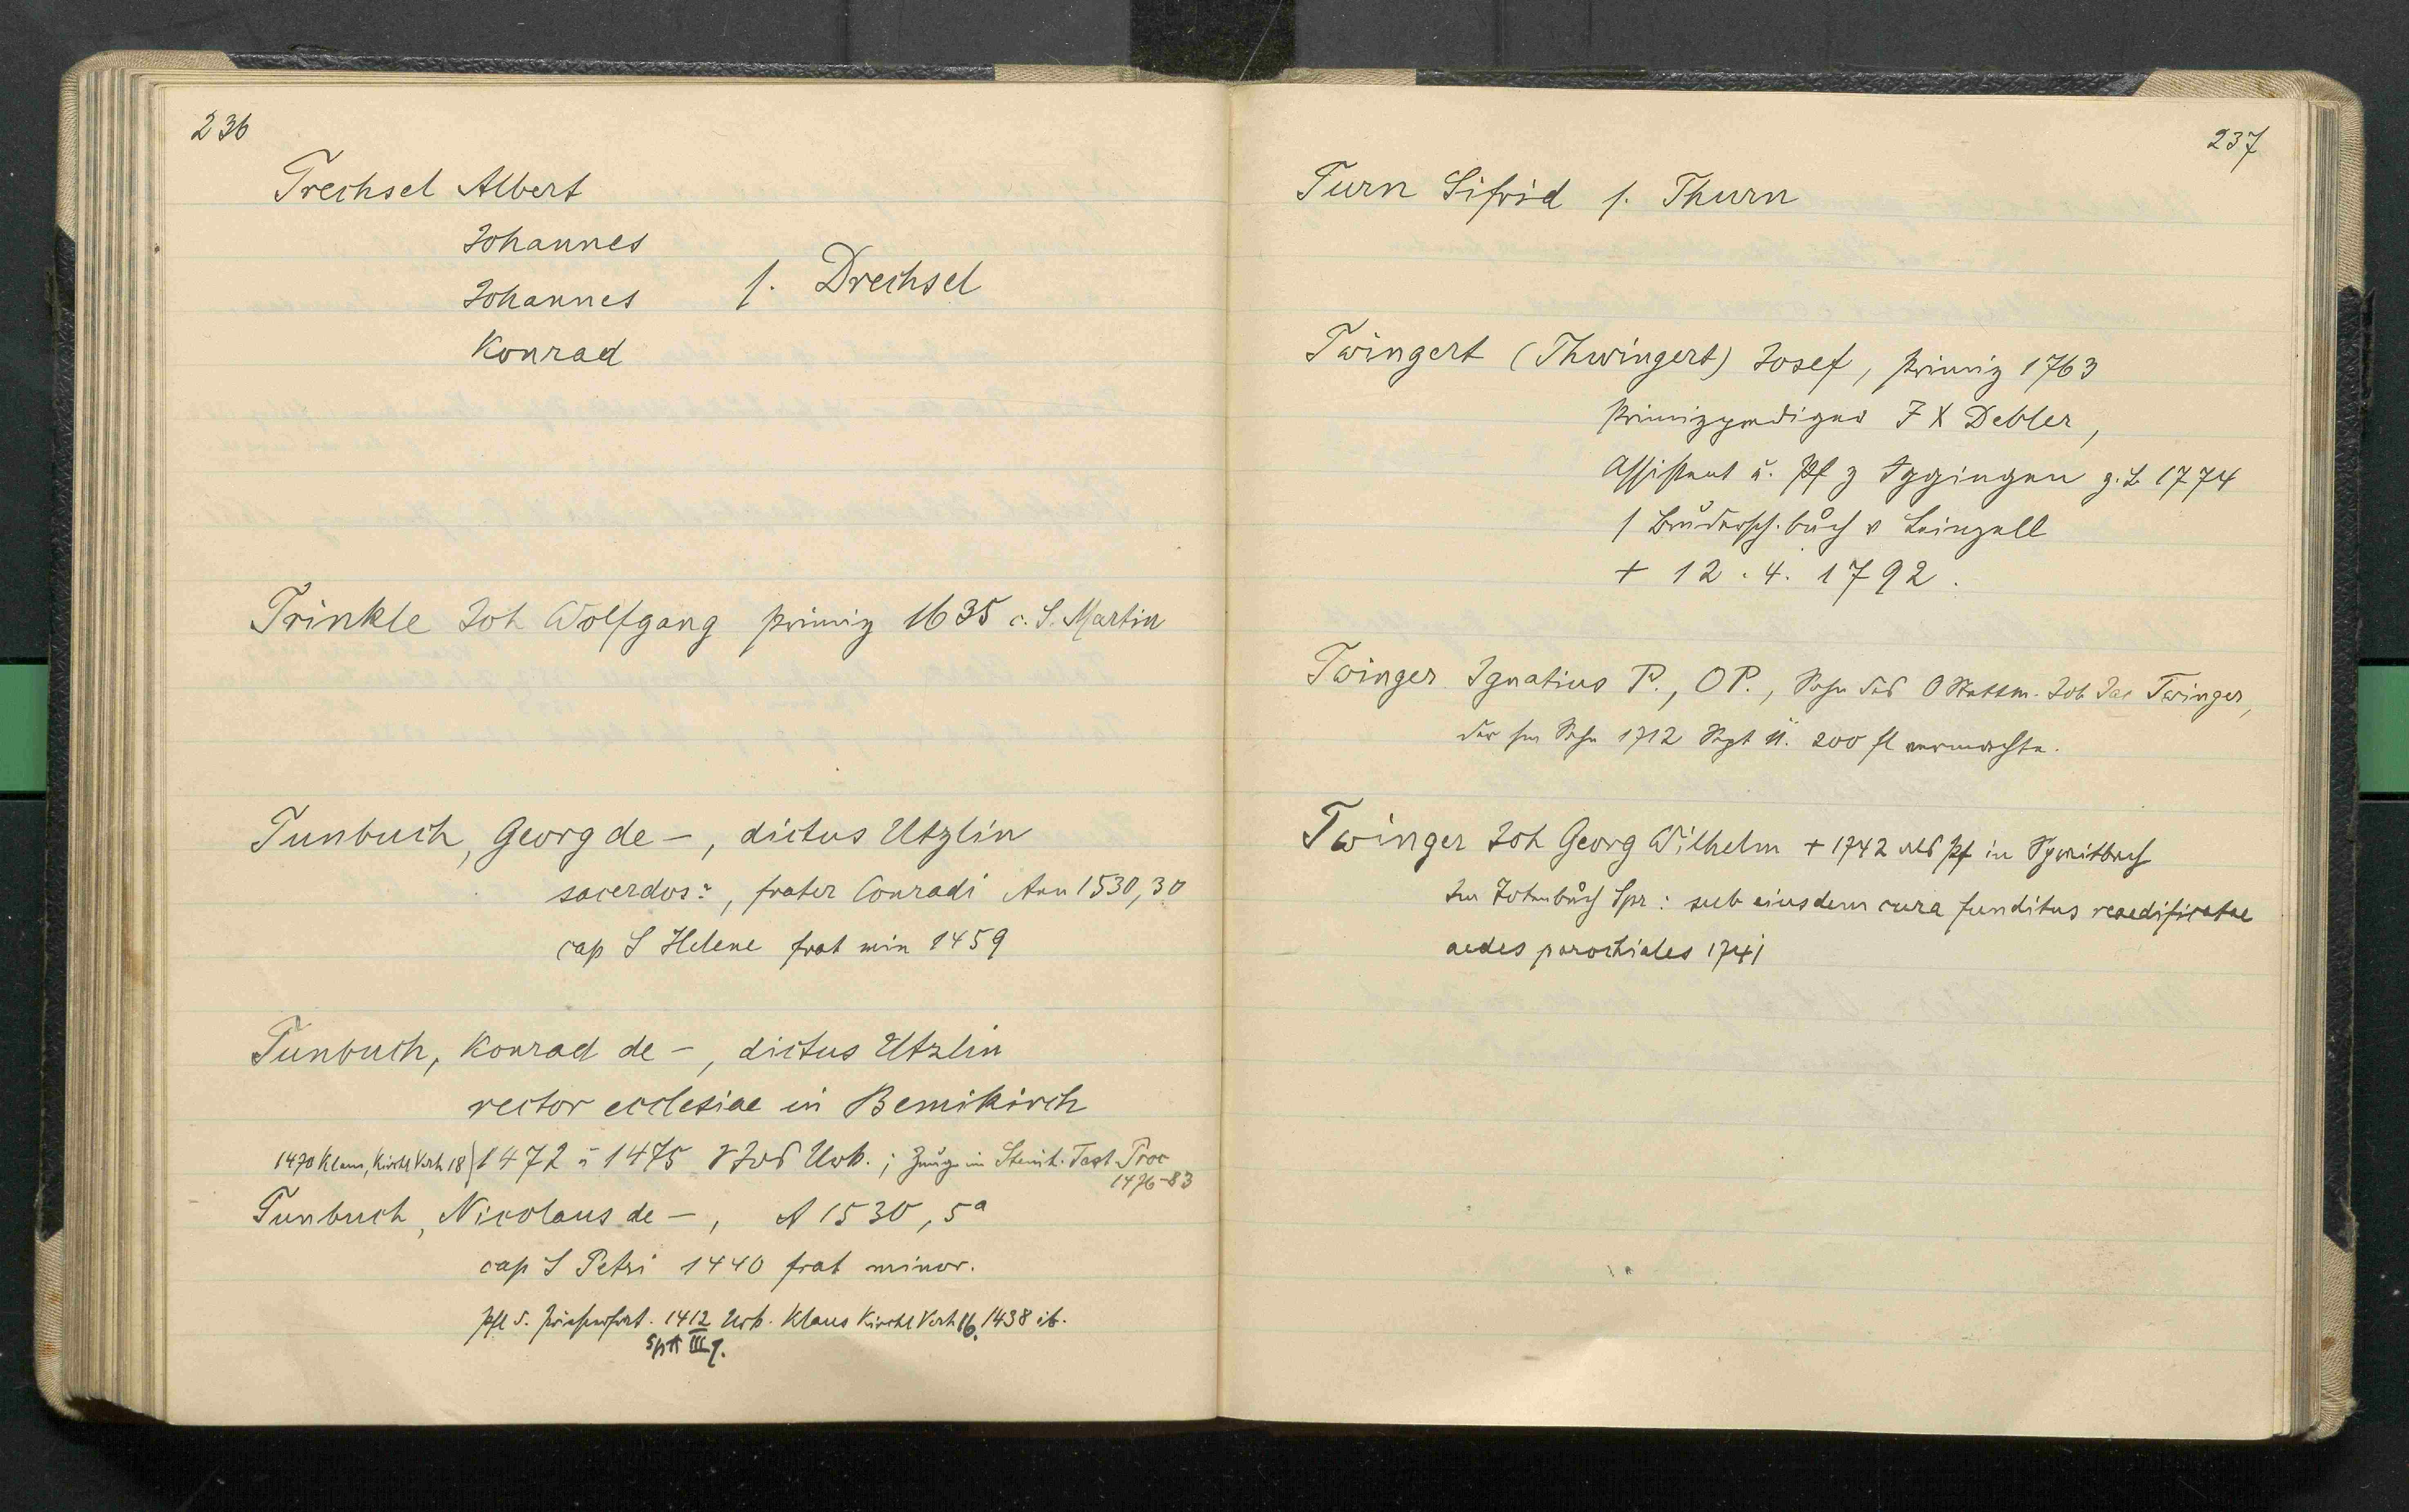 236
Trechsel Albert
Johannes
Johannes s. Drechsel
Konrad
Trinkle Joh Wolfgang primiz 1635 c. S. Martin
Tunbuch, Georg de –, dictus Utzlin
sacerdos, frater Conradi Ann 1530, 30
cap S Helene frat min 1459
Tunbuch, Konrad de –, dictus Utzlin
rector ecclesiae in Bemikirch
1470 Klaus, Kirchl Verh 18) 1472 u 1475 Urk.; Zeuge im Test Proc
1476–83
Tunbuch, Nicolaus de –, A 1530, 5a
cap S Petri 1440 frat minor.
Pfl d. 1412 Urk. Klaus Kirchl Verh 16. 1438 ib.
SpA III 9.
237
Turn Sifrid s. Thurn
Twingert (Thwingert) Josef, Primiz 1763
Primizprediger F X Debler,
Assistent u. Pf z Iggingen z. Z. 1774
s Brudersch. buch v Leinzell
+ 12. 4. 1792.
Twinger Ignatius P., OP., Sohn des Joh Jac Twinger,
der sn Sohn 1712 200 fl vermachte.
Twinger Joh Georg Wilhelm + 1742 als Pf in Spraitbach
Im Totenbuch Spr: sub eiusdem cura funditus reaedificatae
aedes parochiales 1741